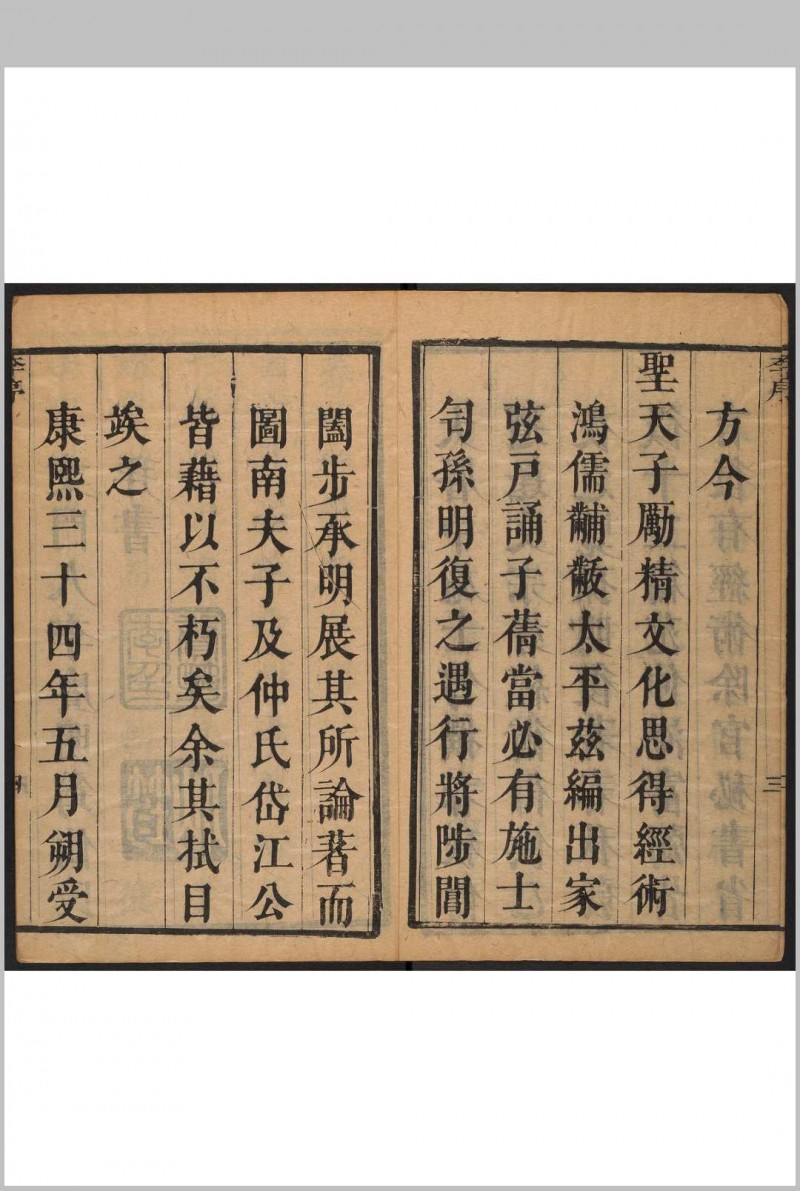 方今
聖天子勵精文化思得經術
鴻儒黼黻太平茲編出家
弦戸誦子蒨當必有施士
匄孫明復之遇行將陟閶
闔步承明展其所論著而
圖南夫子及仲氏岱江公
皆藉以不朽矣余其拭目
竢之
康熙三十四年五月朔受
李序
三
李序
四